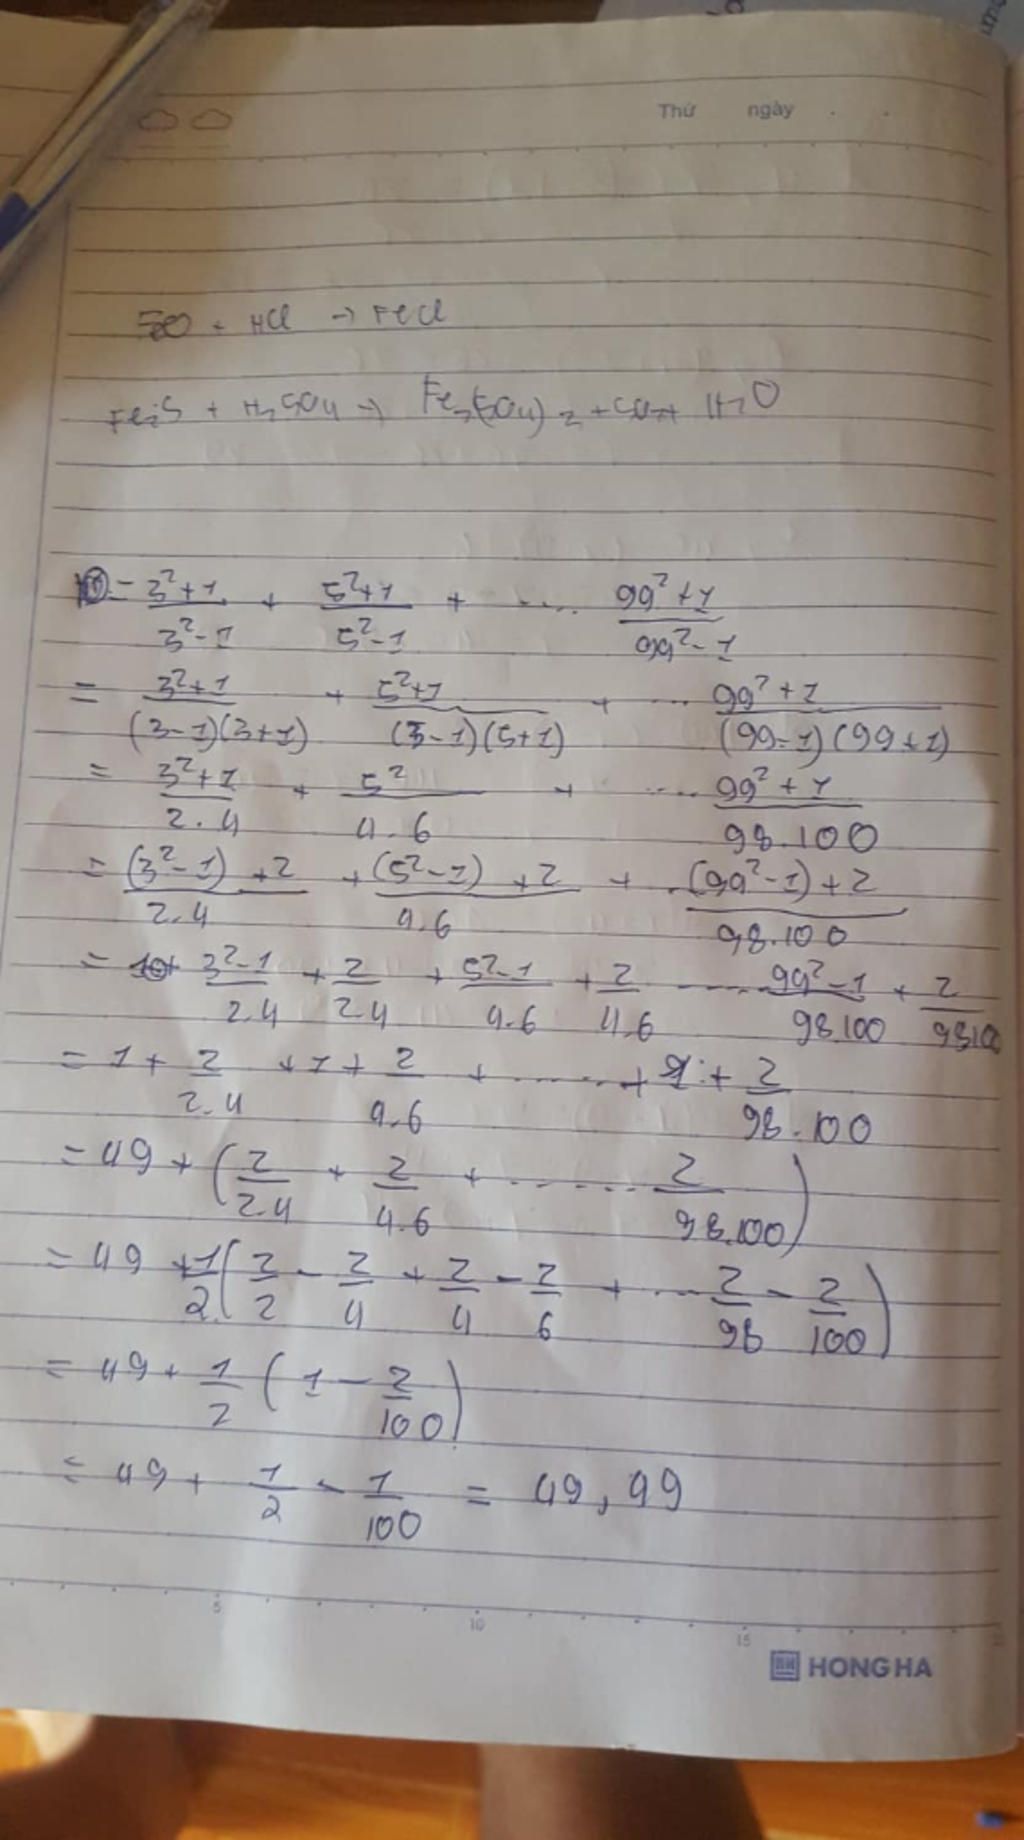 Thứ ngày
FeO + HCl → FeCl
Fe₂S + H₂SO₄ → Fe₂(SO₄)₂ + SO₂ + H₂O
= 3²+1/3²-1 + 5²+1/5²-1 + .... 99²+1/99²-1
= 3²+1/(3-1)(3+1) + 5²+1/(5-1)(5+1) + ... 99²+1/(99-1)(99+1)
= 3²+1/2.4 + 5²/4.6 + .... 99²+1/98.100
= (3²-1)+2/2.4 + (5²-1)+2/4.6 + .(99²-1)+2/98.100
= 3²-1/2.4 + 2/2.4 + 5²-1/4.6 + 2/4.6 ....... 99²-1/98.100 + 2/98.100
= 1 + 2/2.4 + 1 + 2/4.6 + ....... + 1 + 2/98.100
= 49 + (2/2.4 + 2/4.6 + ....... 2/98.100)
= 49 + 1/2 (2/2 - 2/4 + 2/4 - 2/6 + ... 2/98 - 2/100)
= 49 + 1/2 (1 - 2/100)
= 49 + 1/2 - 1/100 = 49,99
5 10 15
HONG HA